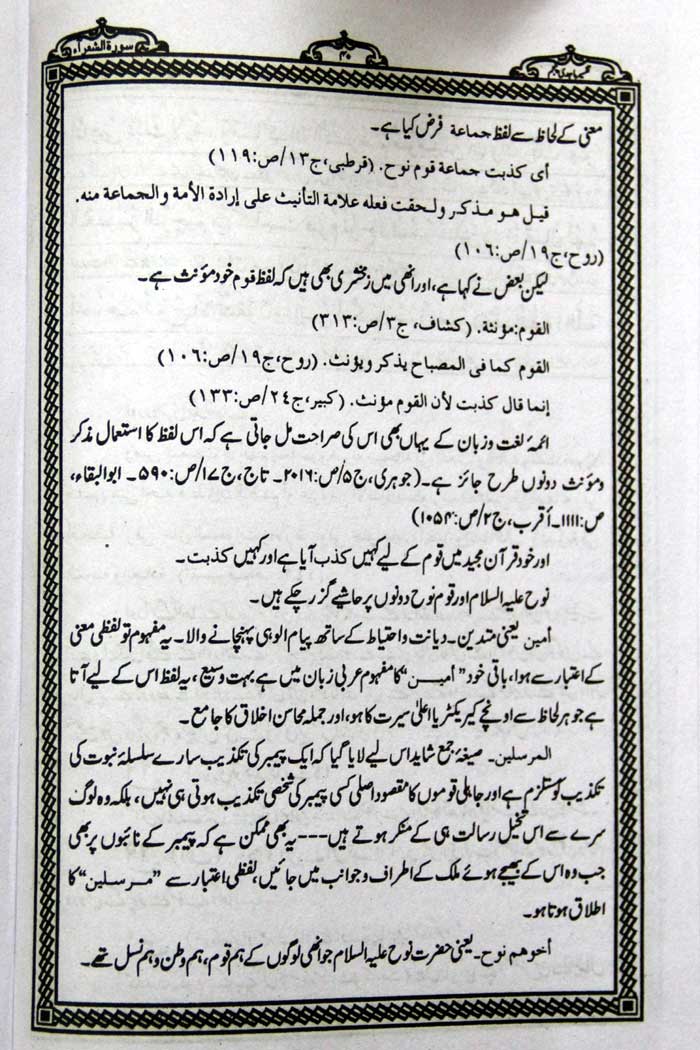 سورة الشعرآء
معنی کے لحاظ سے لفظ جماعة فرض کیا ہے۔
أی کذبت جماعة قوم نوح۔ (قرطبی،ج۱۳/ص:۱۱۹)
قیل هو مذکر ولحقت فعله علامة التأنیث علی إرادة الأمة والجماعة منه۔
(روح،ج۱۹/ص:۱۰۶)
لیکن بعض نے کہا ہے، اور انھی میں زمخشری بھی ہیں کہ لفظ قوم خود مؤنث ہے۔
القوم:مؤنثة۔ (کشاف، ج۳/ص:۳۱۳)
القوم کما فی المصباح یذکر ویؤنث۔ (روح، ج۱۹/ص:۱۰۶)
إنما قال کذبت لأن القوم مؤنث۔ (کبیر،ج۲۴/ص:۱۳۳)
ائمۂ لغت وزبان کے یہاں بھی اس کی صراحت مل جاتی ہے کہ اس لفظ کا استعمال مذکر
ومؤنث دونوں طرح جائز ہے۔(جوہری،ج۵/ص:۲۰۱۶۔ تاج، ج۱۷/ص:۵۹۰۔ ابوالبقاء،
ص:۱۱۱۱۔أقرب،ج۲/ص:۱۰۵۴)
اور خود قرآن مجید میں قوم کے لیے کہیں کذب آیا ہے اور کہیں کذبت۔
نوح علیہ السلام اور قوم نوح دونوں پر حاشیے گزر چکے ہیں۔
أمین یعنی متدین۔ دیانت واحتیاط کے ساتھ پیام الوہی پہنچانے والا۔ یہ مفہوم تو لفظی معنی
کے اعتبار سے ہوا، باقی خود ”أمیـن“ کا مفہوم عربی زبان میں ہے بہت وسیع، یہ لفظ اس کے لیے آتا
ہے جو ہر لحاظ سے اونچے کیریکٹر یا اعلیٰ سیرت کا ہو، اور جملہ محاسن اخلاق کا جامع۔
المرسلین۔ صیغۂ جمع شاید اس لیے لایا گیا کہ ایک پیمبر کی تکذیب سارے سلسلۂ نبوت کی
تکذیب کو مستلزم ہے اور جاہلی قوموں کا مقصود اصلی کسی پیمبر کی شخصی تکذیب ہوتی ہی نہیں، بلکہ وہ لوگ
سرے سے اس تخیل رسالت ہی کے منکر ہوتے ہیں---یہ بھی ممکن ہے کہ پیمبر کے نائبوں پر بھی
جب وہ اس کے بھیجے ہوئے ملک کے اطراف وجوانب میں جائیں، لفظی اعتبار سے ”مرسلین“ کا
اطلاق ہوتا ہو۔
أخوهم نوح۔ یعنی حضرت نوح علیہ السلام جو انھی لوگوں کے ہم قوم، ہم وطن وہم نسل تھے۔